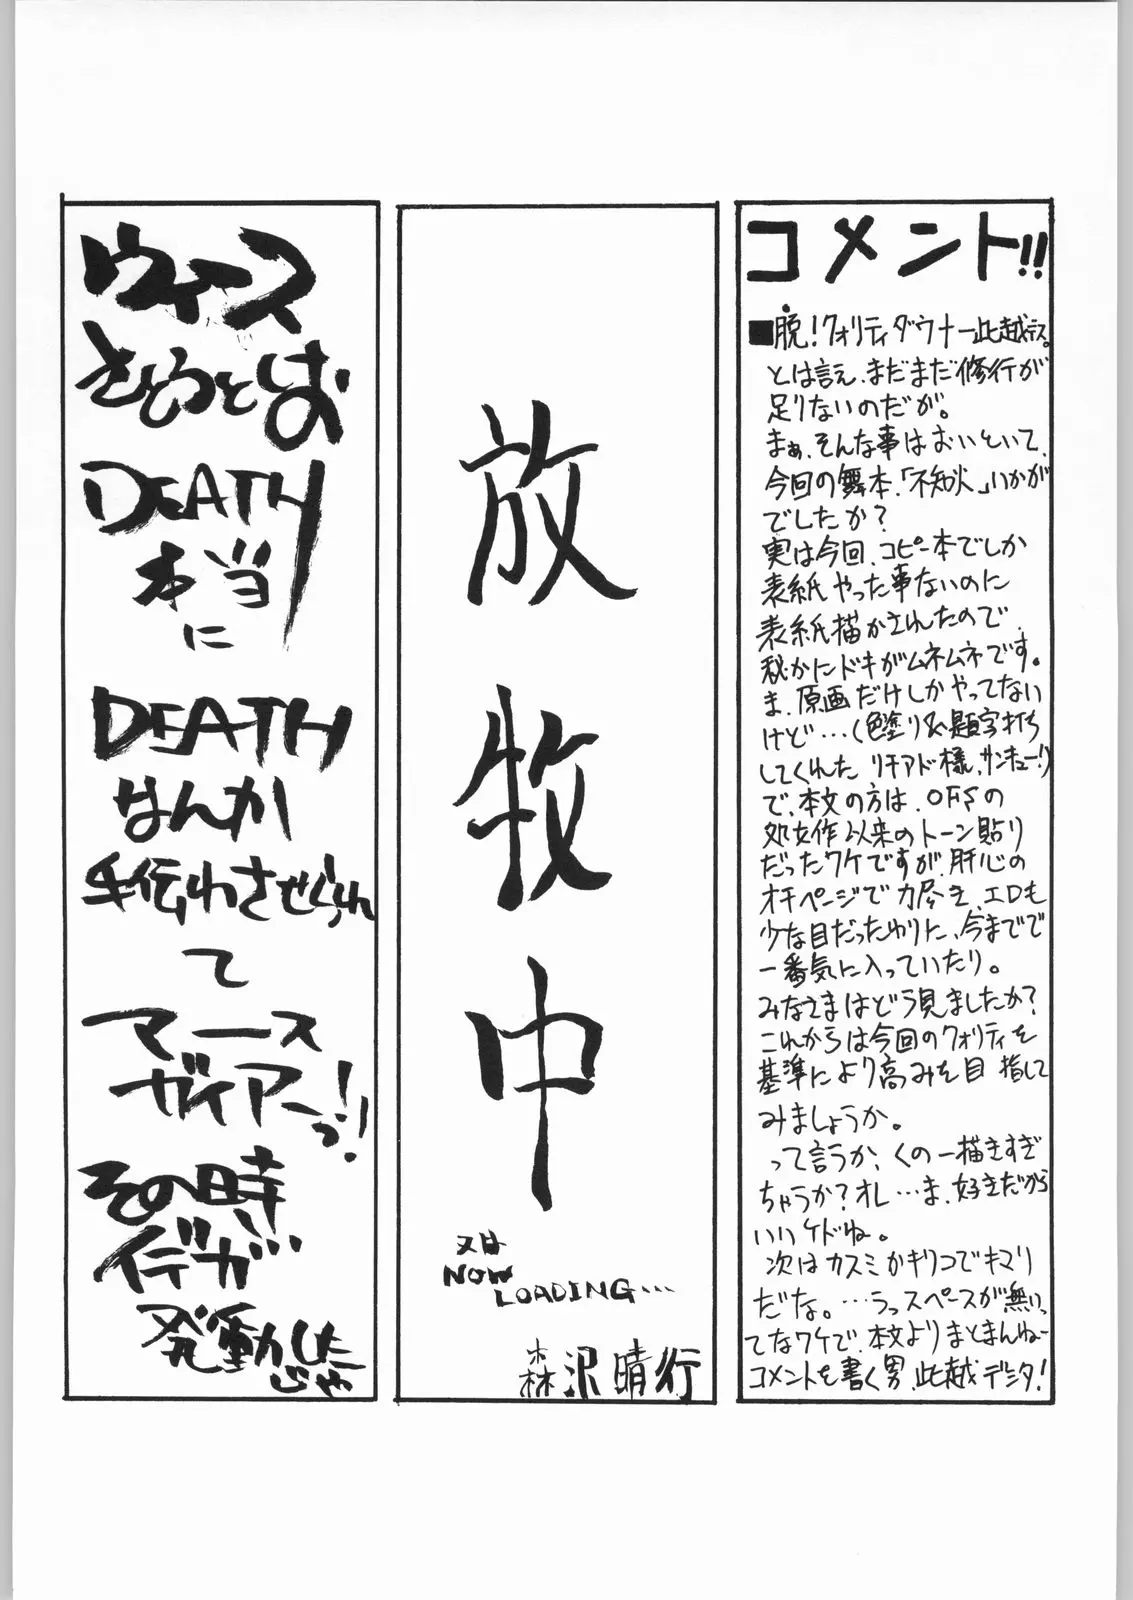 コメント!!
■脱!クォリティダウナー此越デス。
とは言え、まだまだ修行が
足りないのだが。
まぁ、そんな事はおいといて、
今回の舞本、「不知火」いかが
でしたか?
実は今回、コピー本でしか
表紙やった事ないのに
表紙描かされたので、
秘かにドキがムネムネです。
ま、原画だけしかやってない
けど…(色塗り&題字打ち
してくれた リチアド様、サンキュー!)
で、本文の方は、OFSの
処女作以来のトーン貼り
だったワケですが、肝心の
オチページで力尽き、エロも
少な目だったわりに、今までで
一番気に入っていたり。
みなさまはどう見ましたか?
これからは今回のクォリティを
基準により高みを目指して
みましょうか。
って言うか、くの一描きすぎ
ちゃうか?オレ…ま、好きだから
いいケドね。
次はカスミかキリコでキマリ
だな。…うっスペースが無いっ
てなワケで、本文よりまとまんねー
コメントを書く男、此越デジタ!
放牧中
又は
NOW
LOADING…
森沢晴行
ウィース
さとうとしお
DEATH
本当
に
DEATH
なんか
手伝わさせられ
て
マース
ガイアーっ!!
その時…
イデが
発動した
じゃ